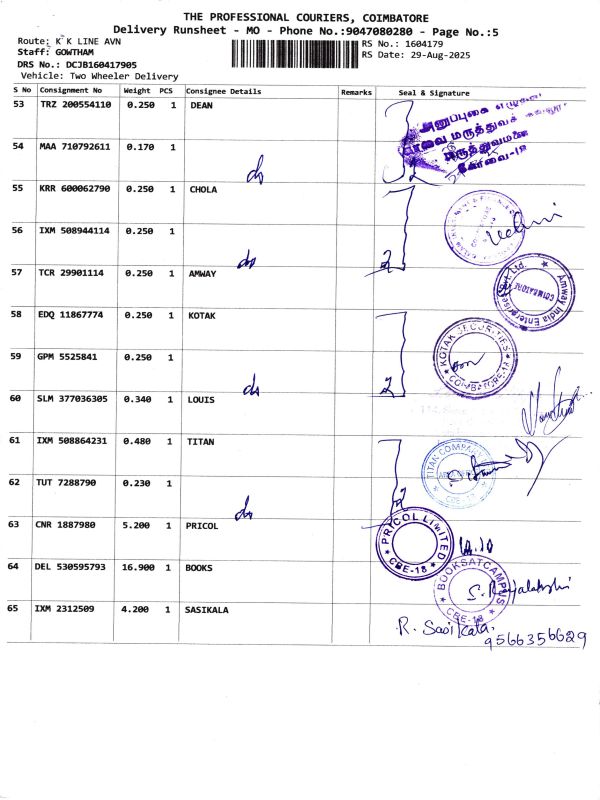 THE PROFESSIONAL COURIERS, COIMBATORE
Delivery Runsheet - MO - Phone No.:9047080280 - Page No.:5
Route: K K LINE AVN
RS No.: 1604179
Staff: GOWTHAM
RS Date: 29-Aug-2025
DRS No.: DCJB160417905
Vehicle: Two Wheeler Delivery
S No Consignment No Weight PCS Consignee Details Remarks Seal & Signature
53 TRZ 200554110 0.250 1 DEAN
அனுப்புகை
மருத்துவக்
மருத்துவமனை
கோவை-18
54 MAA 710792611 0.170 1 do 2
55 KRR 600062790 0.250 1 CHOLA
56 IXM 508944114 0.250 1 do 2
57 TCR 29901114 0.250 1 AMWAY
Amway India Enterprises Pvt. Ltd.
COIMBATORE
58 EDQ 11867774 0.250 1 KOTAK
KOTAK SECURITIES
COIMBATORE-18
59 GPM 5525841 0.250 1 do 2
60 SLM 377036305 0.340 1 LOUIS
61 IXM 508864231 0.480 1 TITAN
TITAN COMPANY
CBE-18
62 TUT 7288790 0.230 1 do 2
63 CNR 1887980 5.200 1 PRICOL
PRICOL LIMITED
CBE-18
64 DEL 530595793 16.900 1 BOOKS
BOOKSATCAMPUS
CBE-18
S. Rajalakshi
65 IXM 2312509 4.200 1 SASIKALA
R. Sasikala.
9566356629